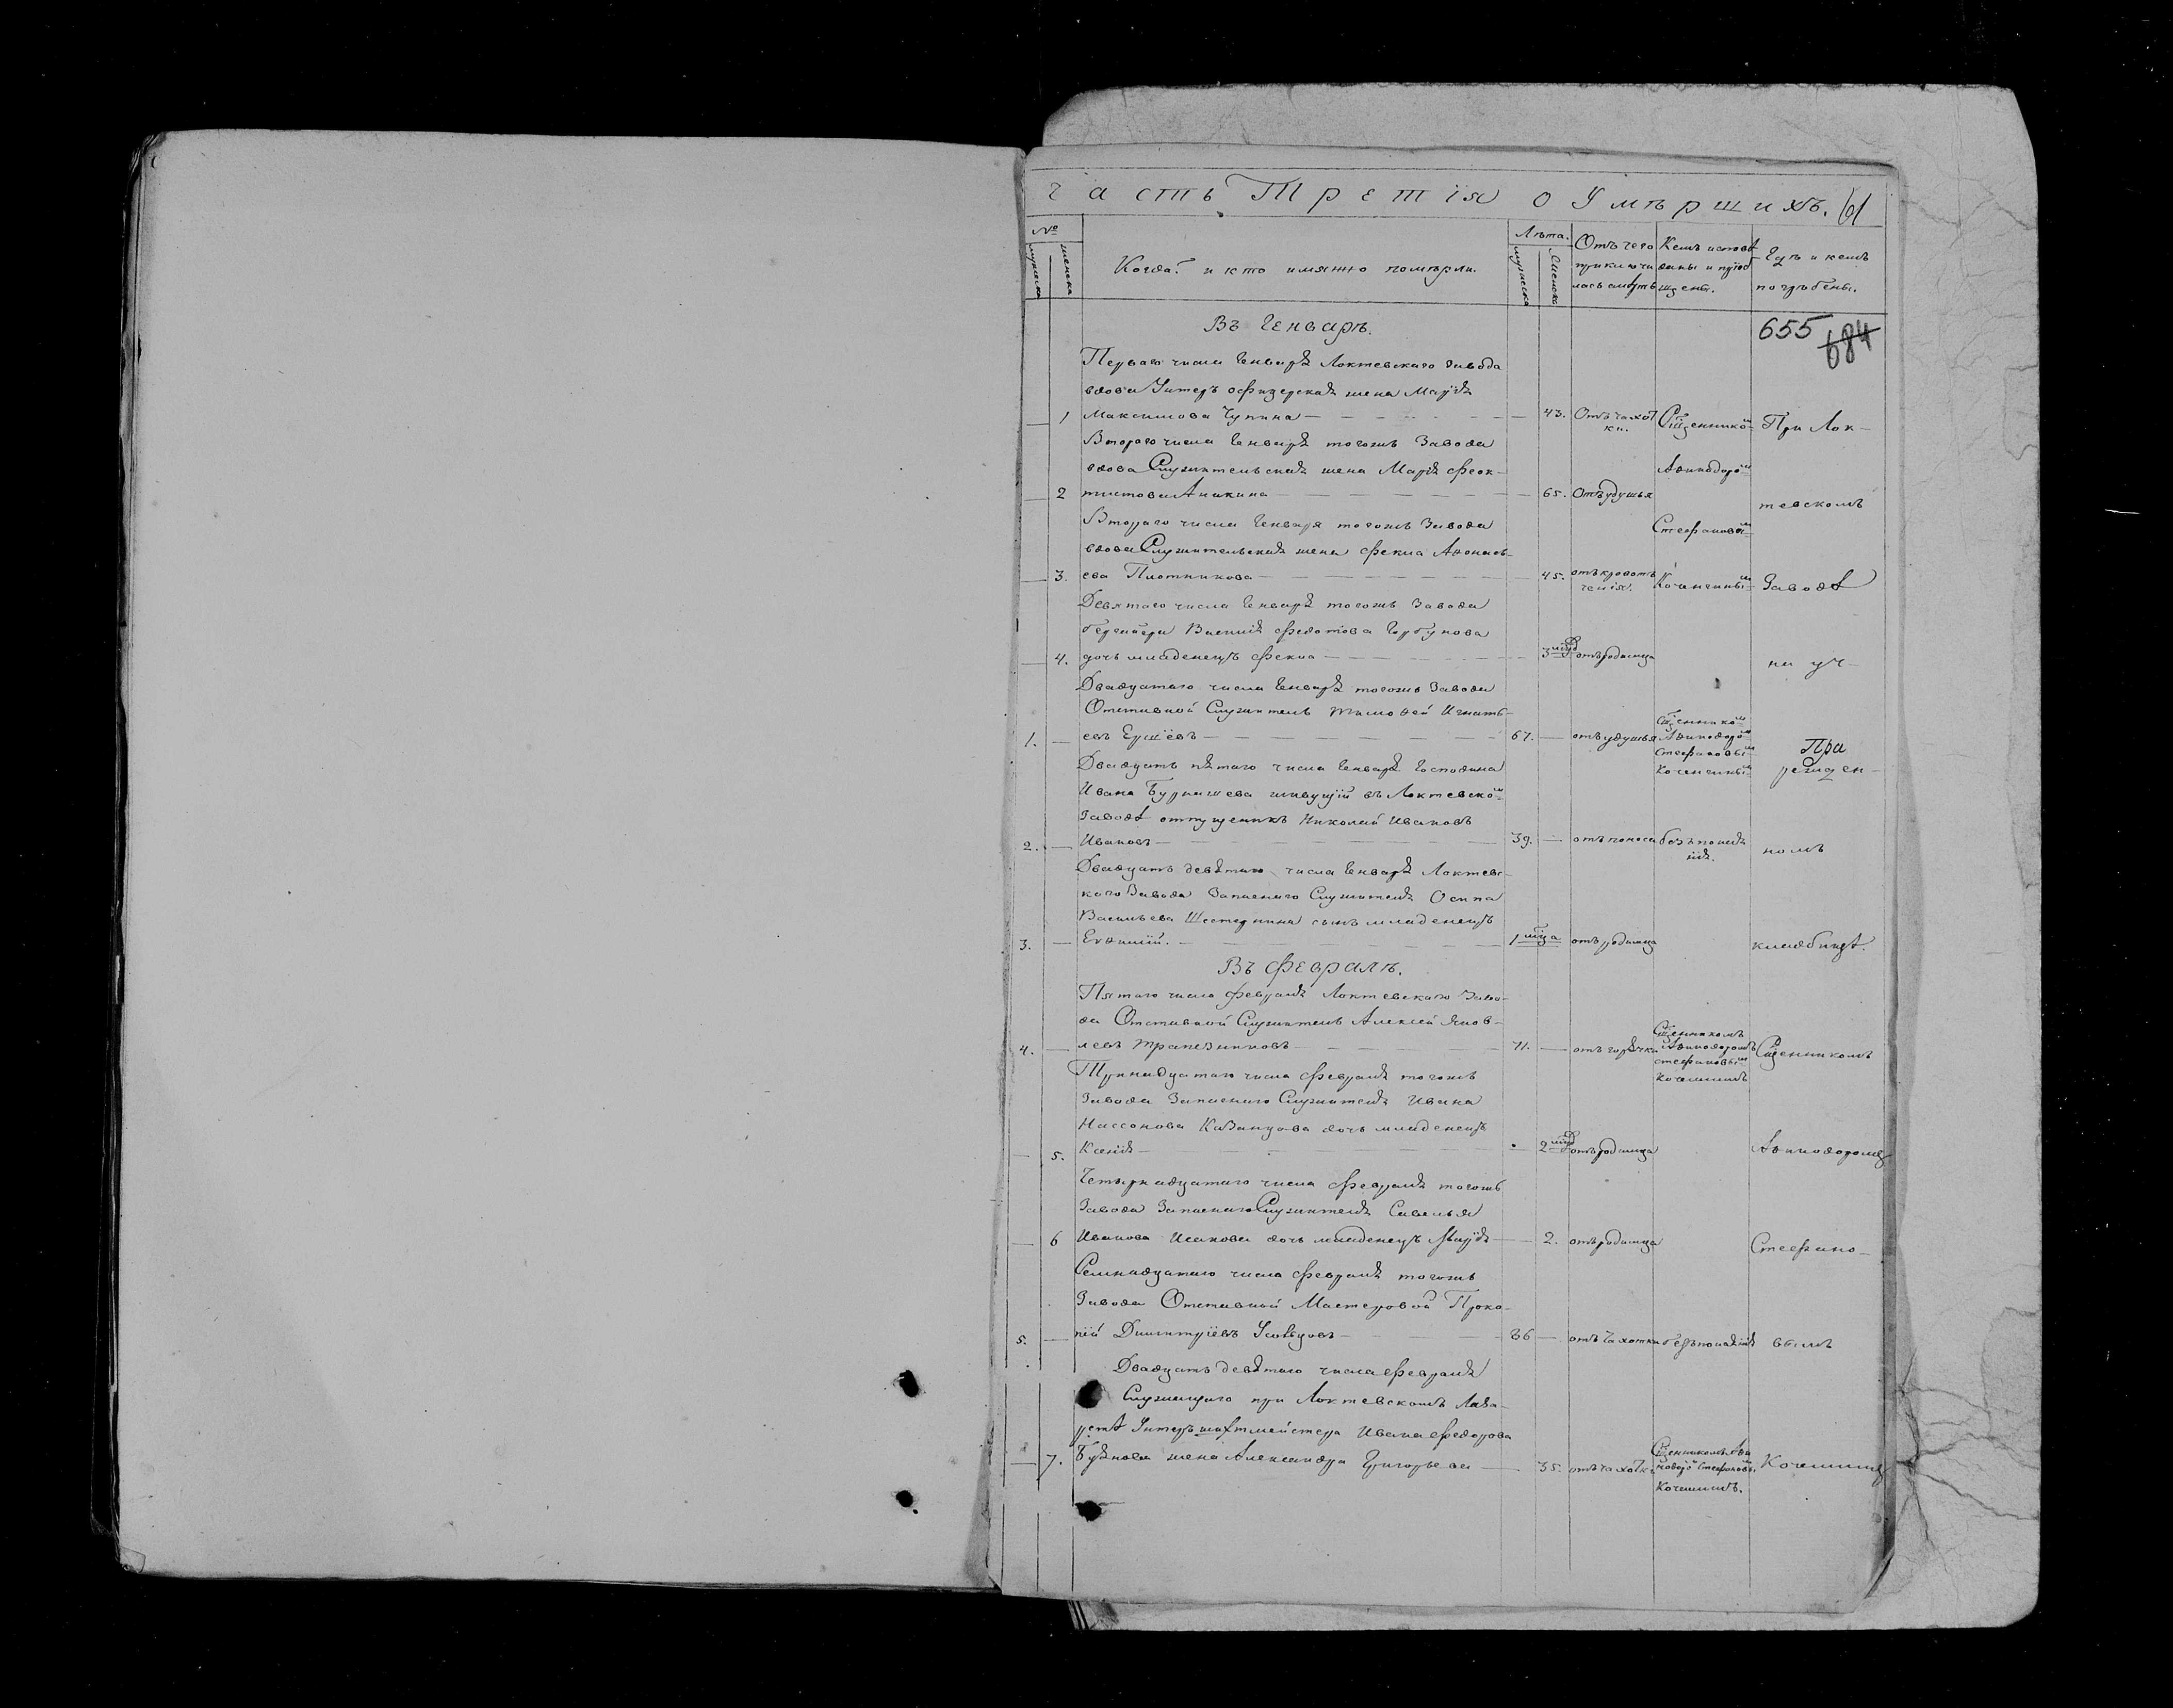 Часть Третія о Умѣршихъ. 61
№
мужеска
женска
Когда? и кто имянно помѣрли.
Лѣта.
мужеска
женска
Отъ чего
приключи
лась смѣрть
Кемъ исповѣ
даны и пріоб
щены.
Гдѣ и кемъ
погрѣбены.
Въ Генварѣ.
655
684
Перваго числа Генваря Локтевскаго завода
вдова Унтеръ офицерская жена Марія
1 Максимова Чупина 43. Отъ чахот
ки.
Сщенникомъ
При Лок-
Втораго числа Генваря тогожъ Завода
вдова Служительская жена Марія Феок-
Аѳинодоромъ
2 тистова Аникина 65. Отъ удушья
тевскомъ
Втораго числа Генваря тогожъ Завода
Стефановымъ
вдова Служительская жена Фекла Аѳонась-
3. ева Плотникова 45. отъ кровотѣ
ченія.
Заводѣ
Девятаго числа Генваря тогожъ Завода
Василія Федотова Горбунова
4. дочь младенецъ Фекла 3 мцовъ отъ родимца
на уч-
Двадцатаго числа Генваря тогожъ Завода
Отставной Служитель Тимоѳей Игнать-
1. евъ Ершёвъ 67. отъ удушья
Сщенникомъ
Аѳинодоромъ
Стефановымъ
При
резиден-
Двадцать пятаго числа Генваря Господина
Ивана живущій въ Локтевскомъ
Заводѣ отпущеникъ Николай Ивановъ
2. Ивановъ 39. отъ поноса безъ покая
нія.
номъ
Двадцать девятаго числа Генваря Локтевс-
каго Завода Запаснаго Служителя Осипа
Васильева Шестернина сынъ младенецъ
3. Евѳимій. 1 мца отъ родимца
кладбищѣ.
Въ Февралѣ.
Пятаго числа Февраля Локтевскаго Заво-
да Отставной Служитель Алексѣй Яков-
4. левъ Трапезниковъ 71. отъ горячки
Сщенникомъ
Аѳинодоромъ
Стефановымъ
Сщенникомъ
Тринадцатаго числа Февраля тогожъ
Завода Запаснаго Служителя Ивана
Нассонова Казанцова дочь младенецъ
5. Ксенія 2 мцовъ отъ родимца
Аѳинодоромъ
Четырнадцатаго числа Февраля тогожъ
Завода Запаснаго Служителя Савелья
6 Иванова Исакова дочь младенецъ Марія 2. отъ родимца
Стефано-
Семнадцатаго числа Февраля тогожъ
Завода Отставной Мастеровой Проко-
5. пій Димитріевъ 36 отъ чахотки безъ покаянія
вымъ
Двадцать девятаго числа Февраля
Служащаго при Локтевскомъ Лаза-
ретѣ Унтеръ шихтмейстера Ивана Федорова
7. жена Александра Григорьева 35. отъ чахотки
Сщенникомъ Аѳи
нодоромъ Стефановымъ